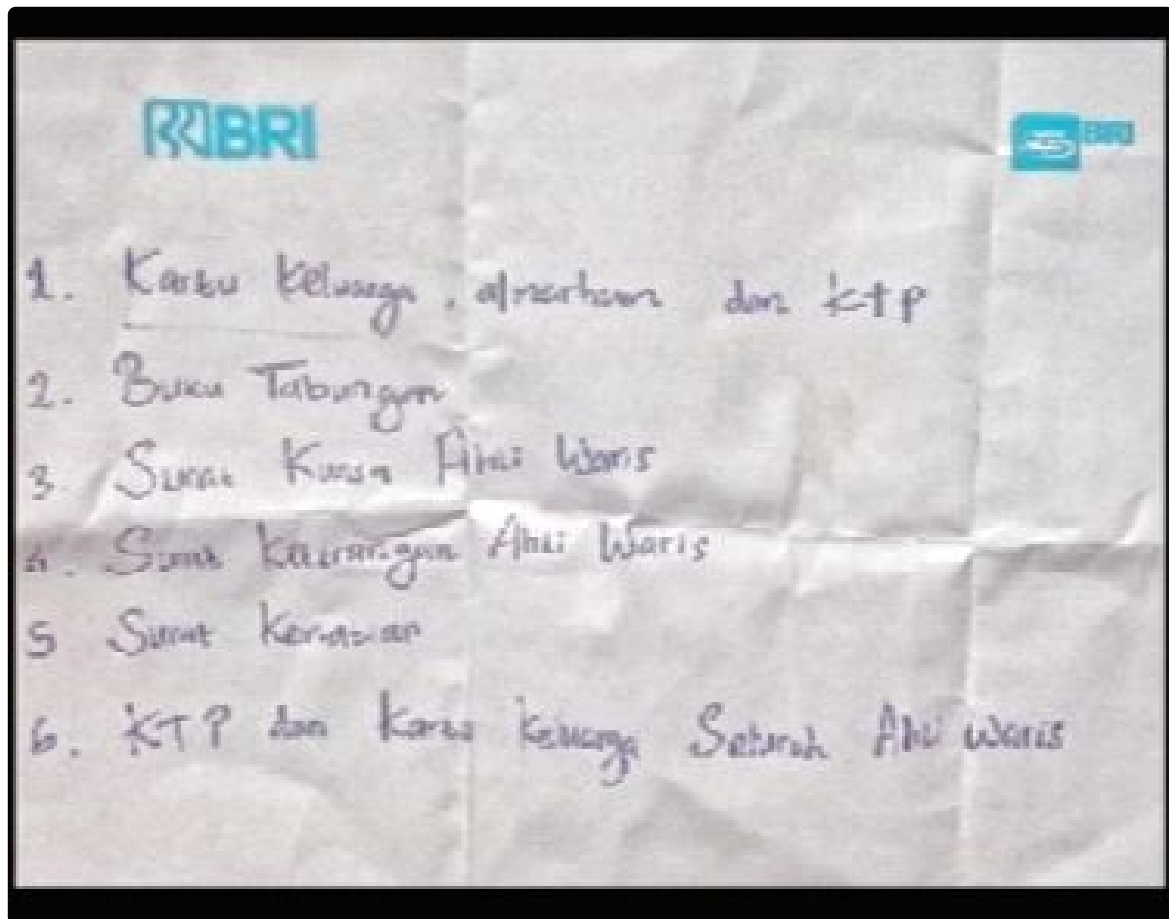 BRI
BRI
1. Kartu Keluarga, almarhum dan KTP
2. Buku Tabungan
3. Surat Kuasa Ahli Waris
4. Surat Keterangan Ahli Waris
5 Surat Kematian
6. KTP dan Kartu Keluarga Seluruh Ahli Waris